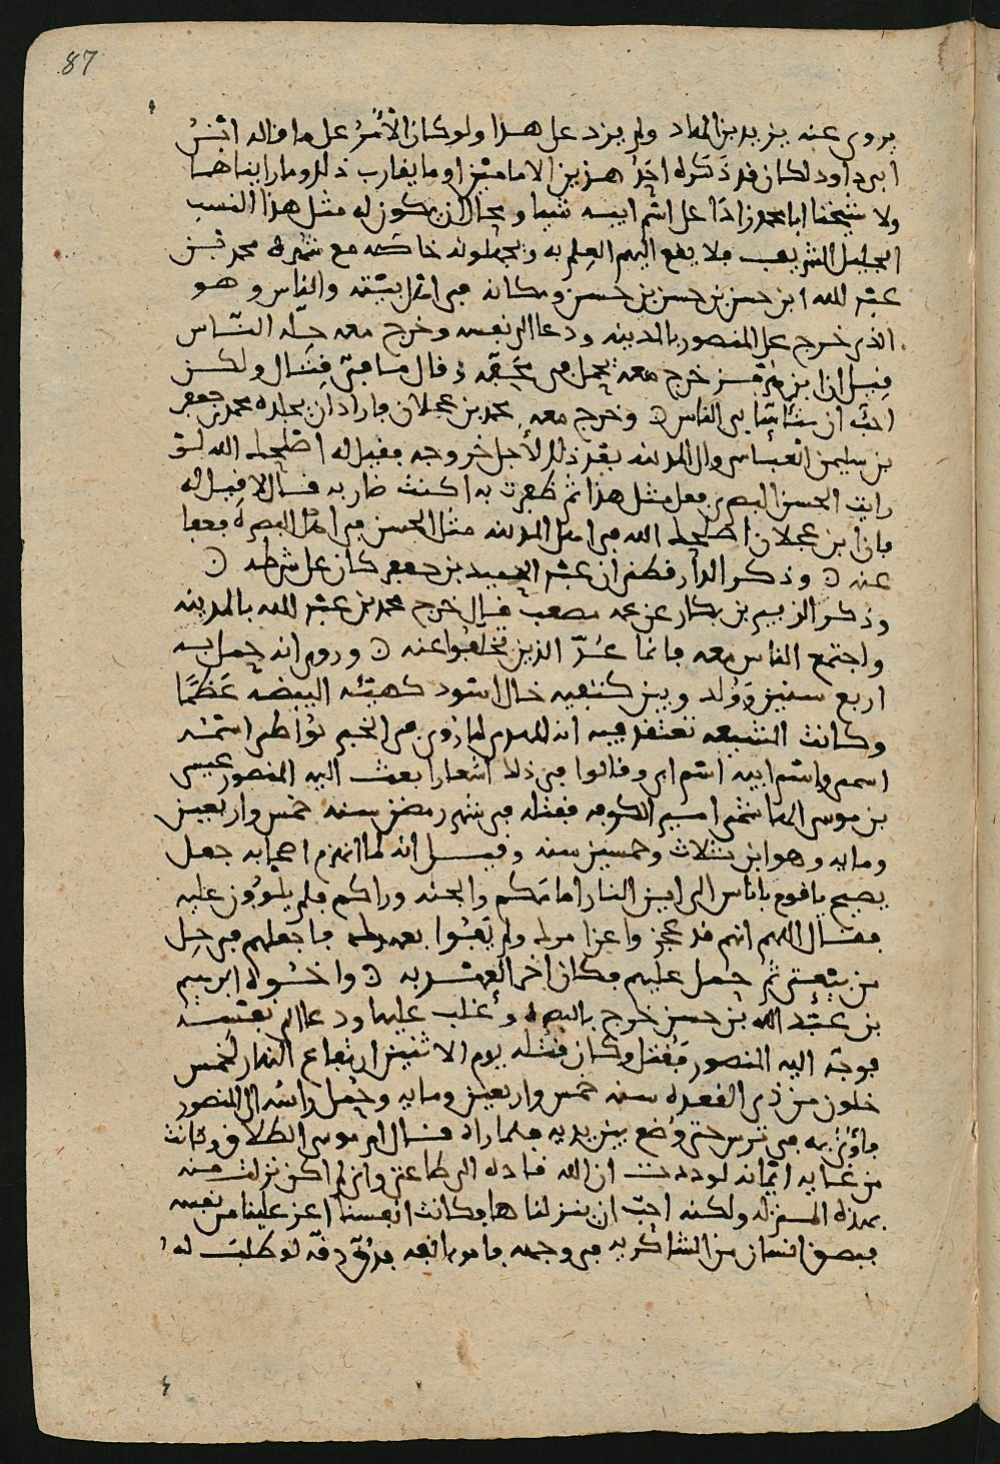 87
يروى عنه يزيد بن الهاد ولم يزد على هذا ولو كان الأمر على ما قاله ابن
ابى داود لكان قد ذكره احد هذين الامامين او ما يقارب ذلك وما راينا هما
ولا شيخنا ابا محمد زادا على اسم ابيه شيا ومحال ان يكون له مثل هذا النسب
الجليل الشريف فلا يقع اليهم العلم به ويجهلونه خاصه مع شهرة محمد بن
عبد الله ابن حسن بن حسن بن حسن ومكانه من اهل بيته والناس وهو
الذى خرج على المنصور بالمدينه ودعا الى نفسه وخرج معه جلة الناس
قيل ان ابن هرمز خرج معه يحمل فى محفة وقال ما فى قتال ولكن
احب ان يتأسا بى الناس وخرج معه محمد بن عجلان فاراد ان يجلده محمد بن جعفر
بن سليمن العباسى والى المدينه بعد ذلك لأجل خروجه فقيل له اصلحك الله لو
رايت الحسن البصرى فعل مثل هذا ثم ظفرت به اكنت ضاربه قال لا قيل له
فان ابن عجلان اصلحك الله فى اهل المدينه مثل الحسن فى اهل البصرة فعفا
عنه وذكر الدارقطنى ان عبد الحميد بن جعفر كان على شرطه
وذكر الزبير بن بكار عن عمه مصعب قال خرج محمد بن عبد الله بالمدينه
واجتمع الناس معه فانما عد الذين تخلفوا عنه وروى انه حمل به
اربع سنين وولد وبين كتفيه خال اسود كهيئه البيضه عظما
وكانت الشيعه تعتقد فيه انه المهدى لما روى فى الخبر يواطى اسمه
اسمى واسم ابيه اسم ابى وقالوا فى ذلك اشعارا بعث اليه المنصور عيسى
بن موسى الهاشمى امير الكوفه فقتله فى شهر رمضن سنه خمس واربعين
ومايه وهو ابن ثلاث وخمسين سنه وقيل انه لما انهزم اصحابه جعل
يصيح يا قوم يا ناس الى اين النار امامكم والجنه وراكم فلم يلوون عليه
فقال اللهم انهم قد عجزوا عن امرك ولم يفوا بعهدك فاجعلهم فى حل
من بيعتى ثم حمل عليهم فكان اخر العهد به واخوه ابرهيم
بن عبد الله بن حسن خرج بالبصرة وغلب عليها ودعا الى نفسه
فوجه اليه المنصور فقتل وكان قتله يوم الاثنين ارتفاع النهار لخمس
خلون من ذى القعدة سنه خمس واربعين ومايه وحمل راسه الى المنصور
فأوتى به فى ترس حتى وضع بين يديه فلما راه قال ابى موسى الطلاق وكانت
من غايه ايمانه لوددت ان الله قادك الى طاعتى وانى لم اكن نزلت منه
بهذه المنزله ولكنه احب ان ينزلنا ها وكانت انفسنا اعز علينا من نفسه
فبصق انسان من الشاكريه فى وجهه فامر بانفه فدق دقه لو طلبت له